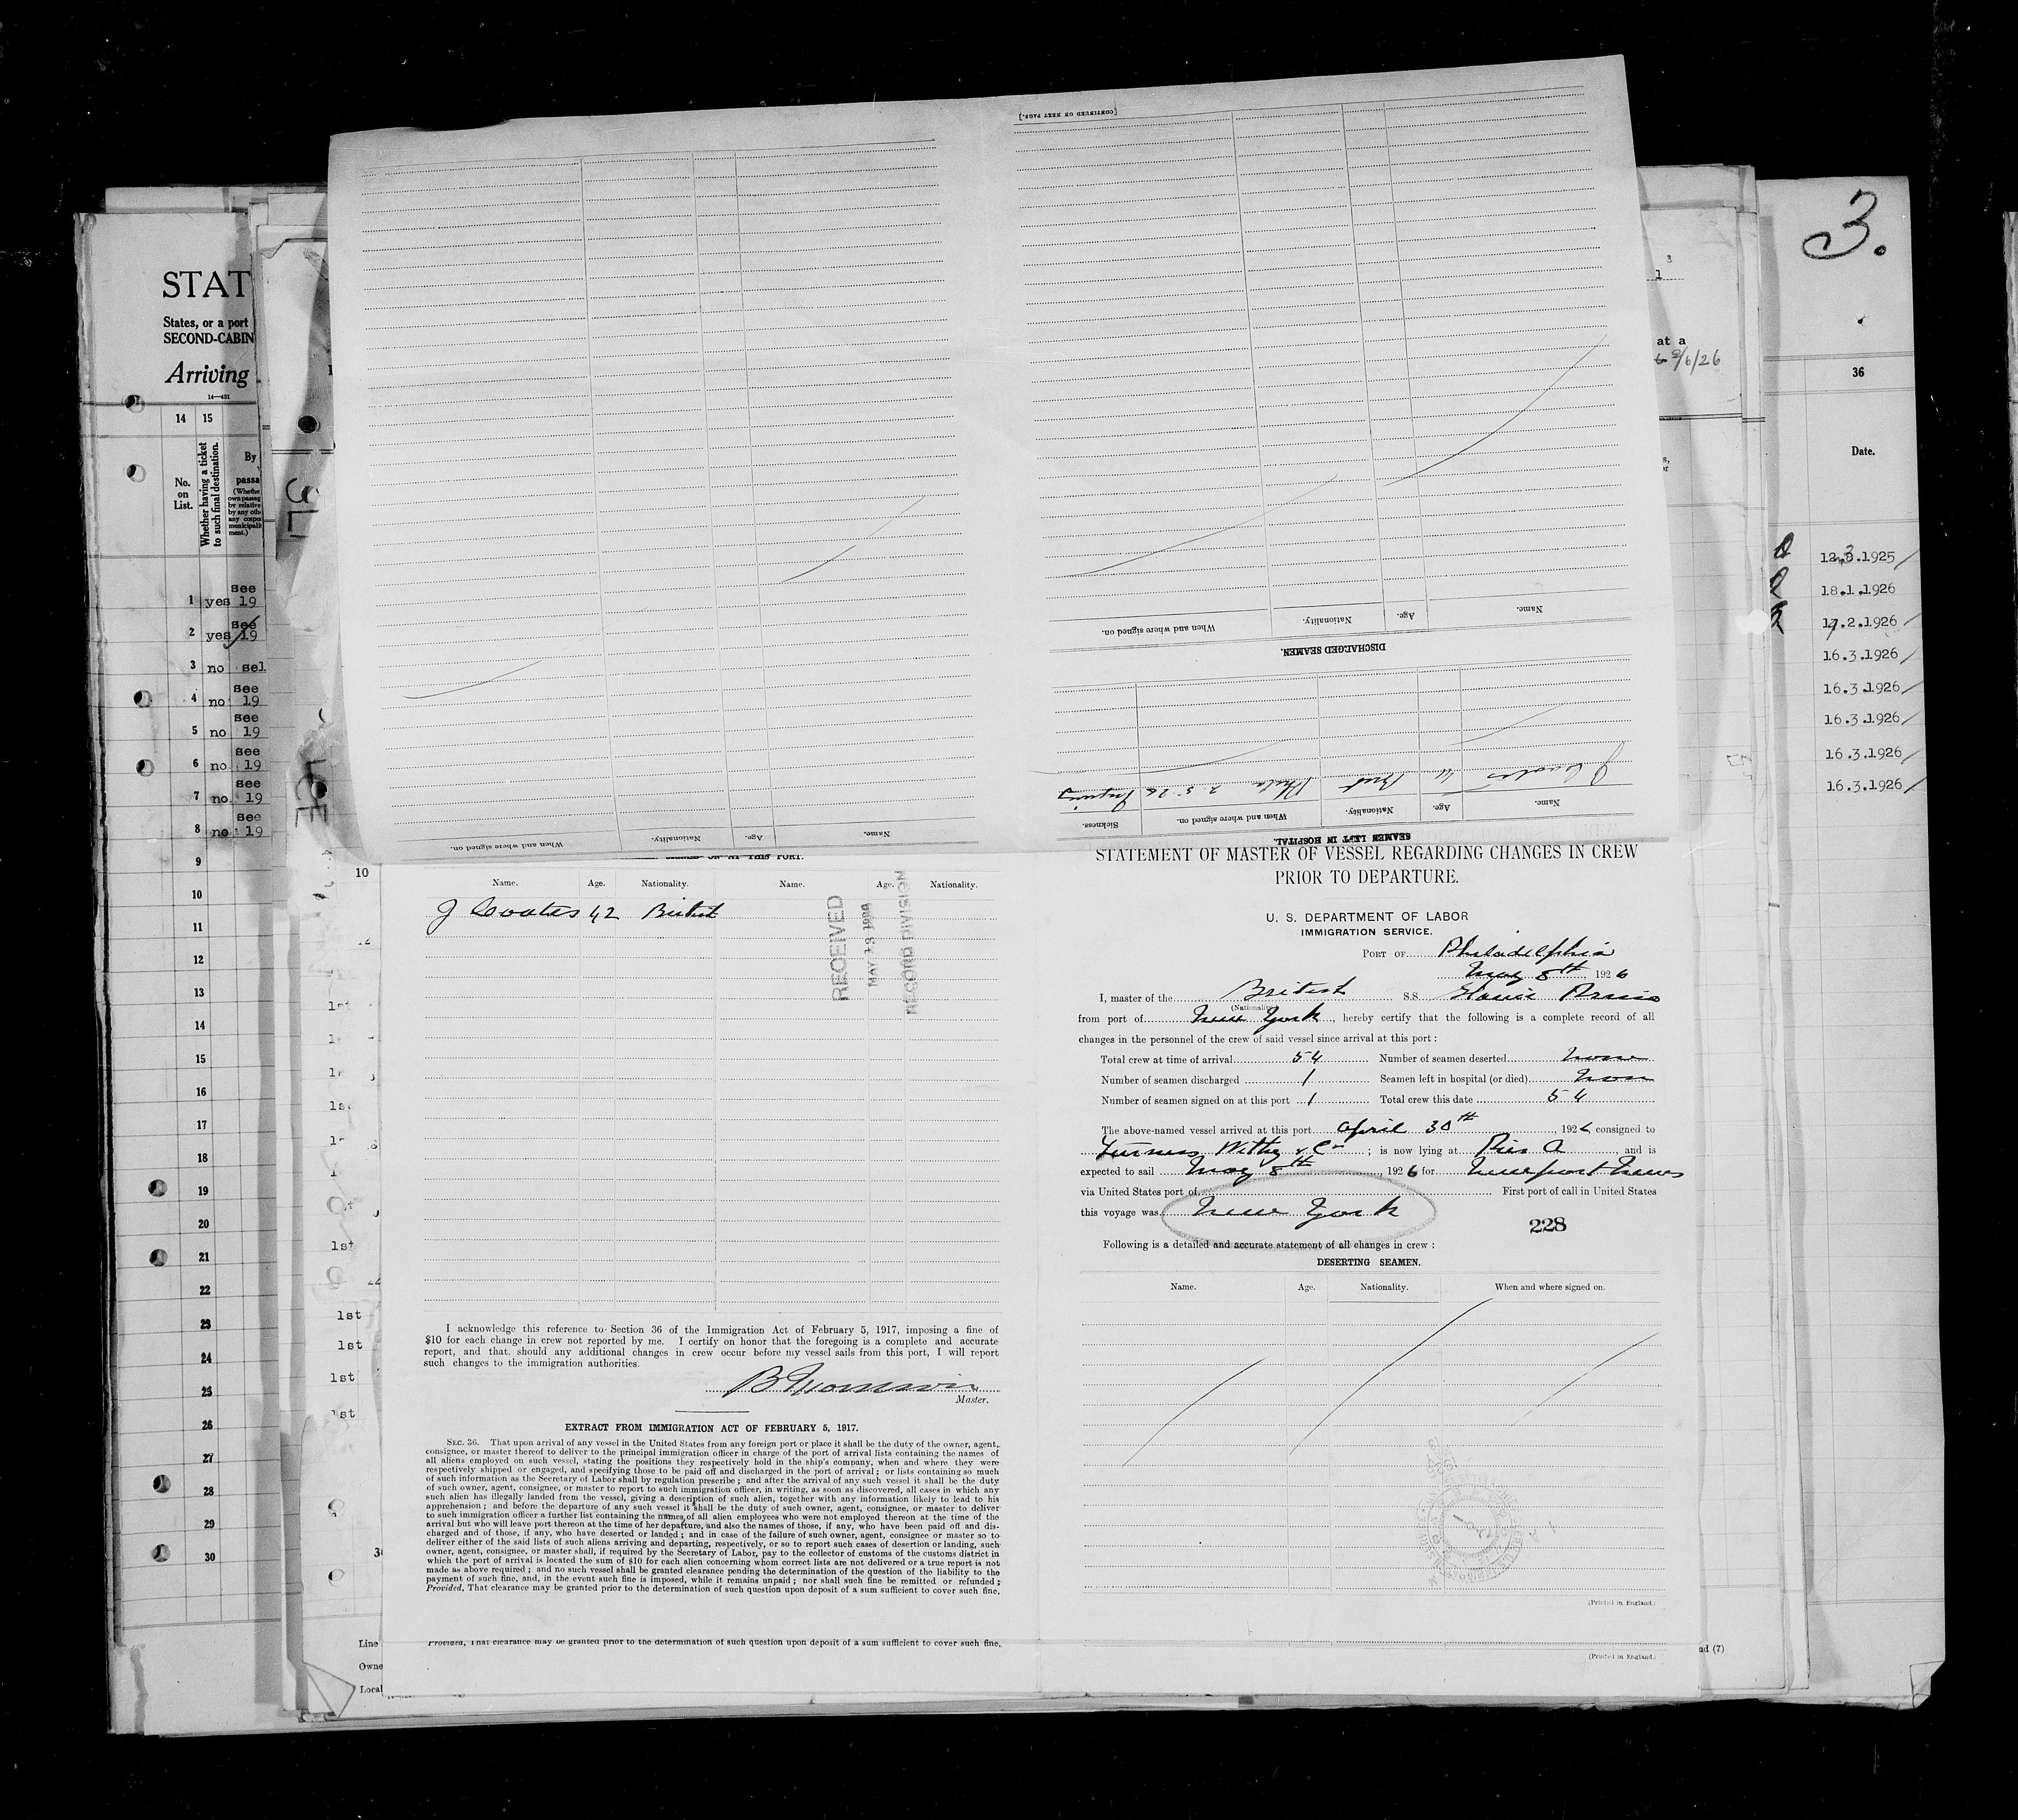 [CONTINUED ON NEXT PAGE.]
3.
STAT
States, or a port
SECOND-CABIN
Arriving
14—431
14 15
No. on List.
Whether having a ticket to such final destination.
By
passa
1 yes see 19
2 yes see 19
3 no sel
4 no see 19
5 no see 19
6 no see 19
7 no see 19
8 no see 19
9
10
11
12
13
14
15
16
17
18
19
20
21
22
23
24
25
26
27
28
29
30
at a
36
Date.
18.1.1926
2.1926
16.3.1926
16.3.1926
16.3.1926
16.3.1926
16.3.1926
Name. Age. Nationality. When and where signed on.
DISCHARGED SEAMEN.
Name. Age. Nationality. When and where signed on. Sickness.
SEAMEN LEFT IN HOSPITAL.
Name. Age. Nationality. When and where signed on.
Name. Age. Nationality. Name. Age. Nationality.
J Coates 42 British
RECEIVED
MAY 13
RECORD DIVISION
I acknowledge this reference to Section 36 of the Immigration Act of February 5, 1917, imposing a fine of
$10 for each change in crew not reported by me. I certify on honor that the foregoing is a complete and accurate
report, and that. should any additional changes in crew occur before my vessel sails from this port, I will report
such changes to the immigration authorities.
Master.
EXTRACT FROM IMMIGRATION ACT OF FEBRUARY 5, 1917.
SEC. 36. That upon arrival of any vessel in the United States from any foreign port or place it shall be the duty of the owner, agent,
consignee, or master thereof to deliver to the principal immigration officer in charge of the port of arrival lists containing the names of
all aliens employed on such vessel, stating the positions they respectively hold in the ship's company, when and where they were
respectively shipped or engaged, and specifying those to be paid off and discharged in the port of arrival; or lists containing so much
of such information as the Secretary of Labor shall by regulation prescribe; and after the arrival of any such vessel it shall be the duty
of such owner, agent, consignee, or master to report to such immigration officer, in writing, as soon as discovered, all cases in which any
such alien has illegally landed from the vessel, giving a description of such alien, together with any information likely to lead to his
apprehension; and before the departure of any such vessel it shall be the duty of such owner, agent, consignee, or master to deliver
to such immigration officer a further list containing the names of all alien employees who were not employed thereon at the time of the
arrival but who will leave port thereon at the time of her departure, and also the names of those, if any, who have been paid off and dis-
charged and of those, if any, who have deserted or landed; and in case of the failure of such owner, agent, consignee or master so to
deliver either of the said lists of such aliens arriving and departing, respectively, or so to report such cases of desertion or landing, such
owner, agent, consignee, or master shall, if required by the Secretary of Labor, pay to the collector of customs of the customs district in
which the port of arrival is located the sum of $10 for each alien concerning whom correct lists are not delivered or a true report is not
made as above required; and no such vessel shall be granted clearance pending the determination of the question of the liability to the
payment of such fine, and, in the event such fine is imposed, while it remains unpaid; nor shall such fine be remitted or refunded;
Provided, That clearance may be granted prior to the determination of such question upon deposit of a sum sufficient to cover such fine.
Provided, That clearance may be granted prior to the determination of such question upon deposit of a sum sufficient to cover such fine.
Line
Owne
Local
STATEMENT OF MASTER OF VESSEL REGARDING CHANGES IN CREW
PRIOR TO DEPARTURE.
U. S. DEPARTMENT OF LABOR
IMMIGRATION SERVICE.
PORT OF Philadelphia
May 8th, 1926
I, master of the British S.S.
(Nationality)
from port of New York, hereby certify that the following is a complete record of all
changes in the personnel of the crew of said vessel since arrival at this port:
Total crew at time of arrival 54 Number of seamen deserted none
Number of seamen discharged 1 Seamen left in hospital (or died) non
Number of seamen signed on at this port 1 Total crew this date 54
The above-named vessel arrived at this port april 30th, 1926, consigned to
Furness, Withy & Co; is now lying at Pier A and is
expected to sail May 8th, 1926 for Newport News
via United States port of First port of call in United States
this voyage was New York
228
Following is a detailed and accurate statement of all changes in crew:
DESERTING SEAMEN.
Name. Age. Nationality. When and where signed on.
(Printed in England.)
(Printed in England.)
nd (7)